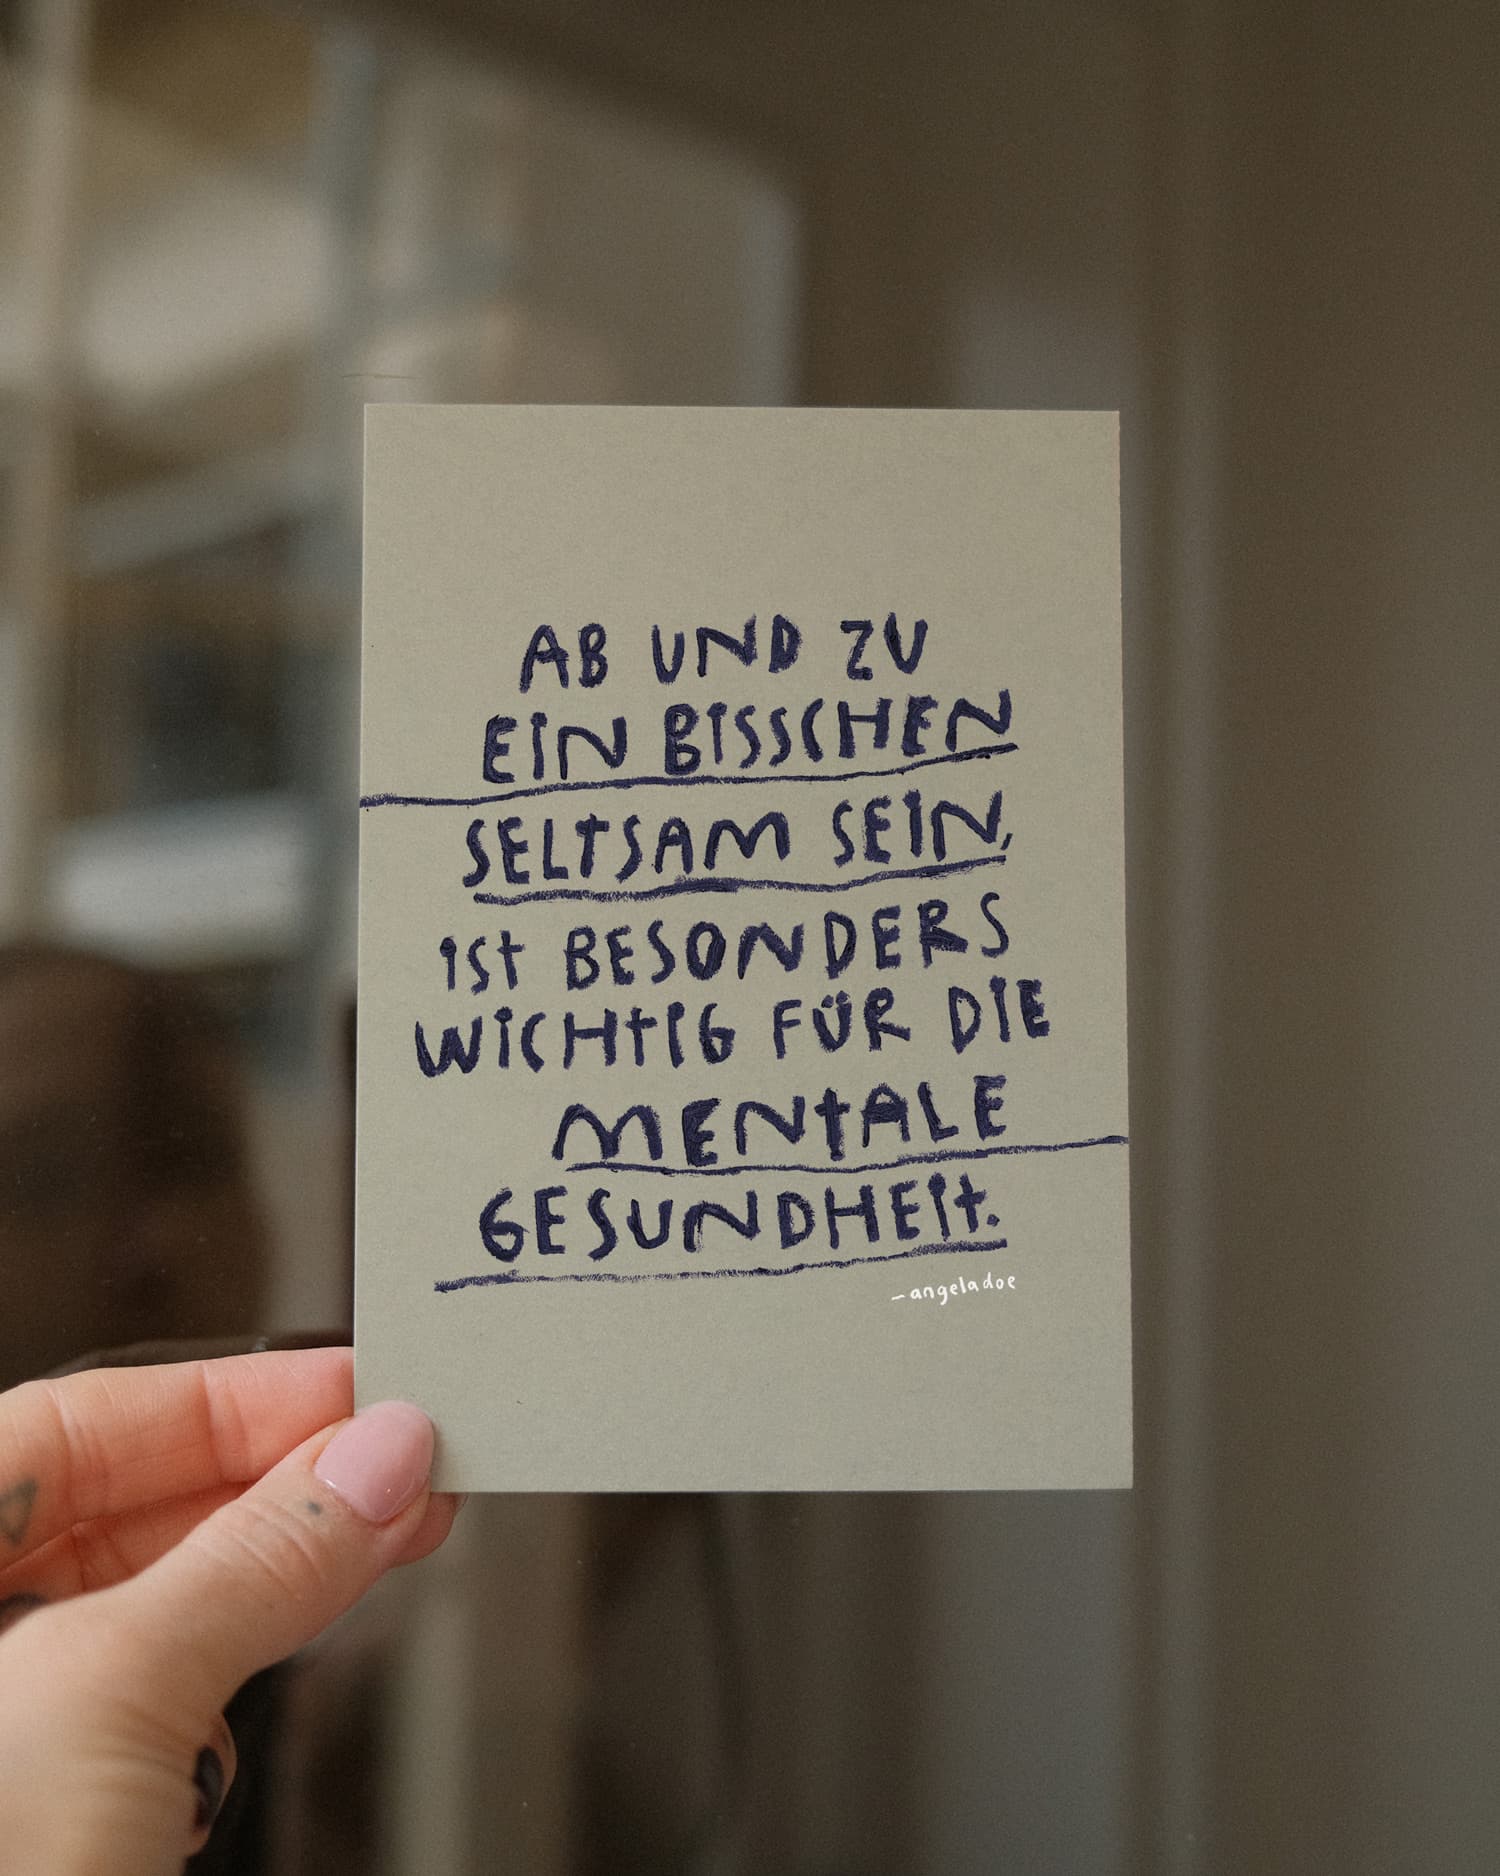 AB UND ZU
EIN BISSCHEN
SELTSAM SEIN,
IST BESONDERS
WICHTIG FÜR DIE
MENTALE
GESUNDHEIT.
–angeladoe